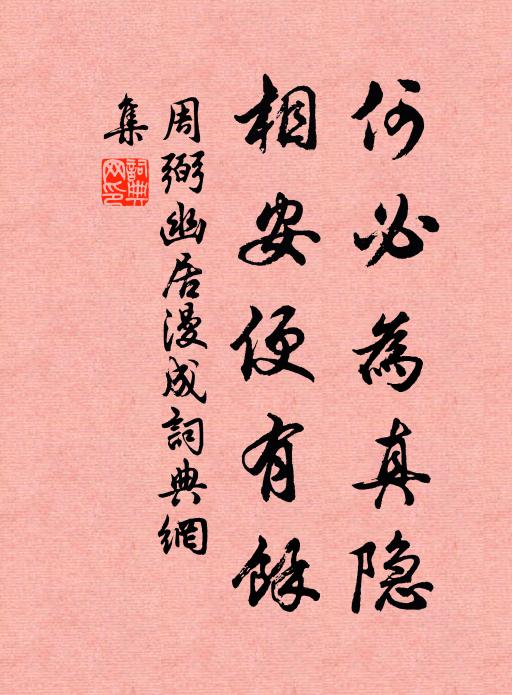 何必為真隐
相安便有餘
周弼幽居漫成詞典網
集
詞典網印